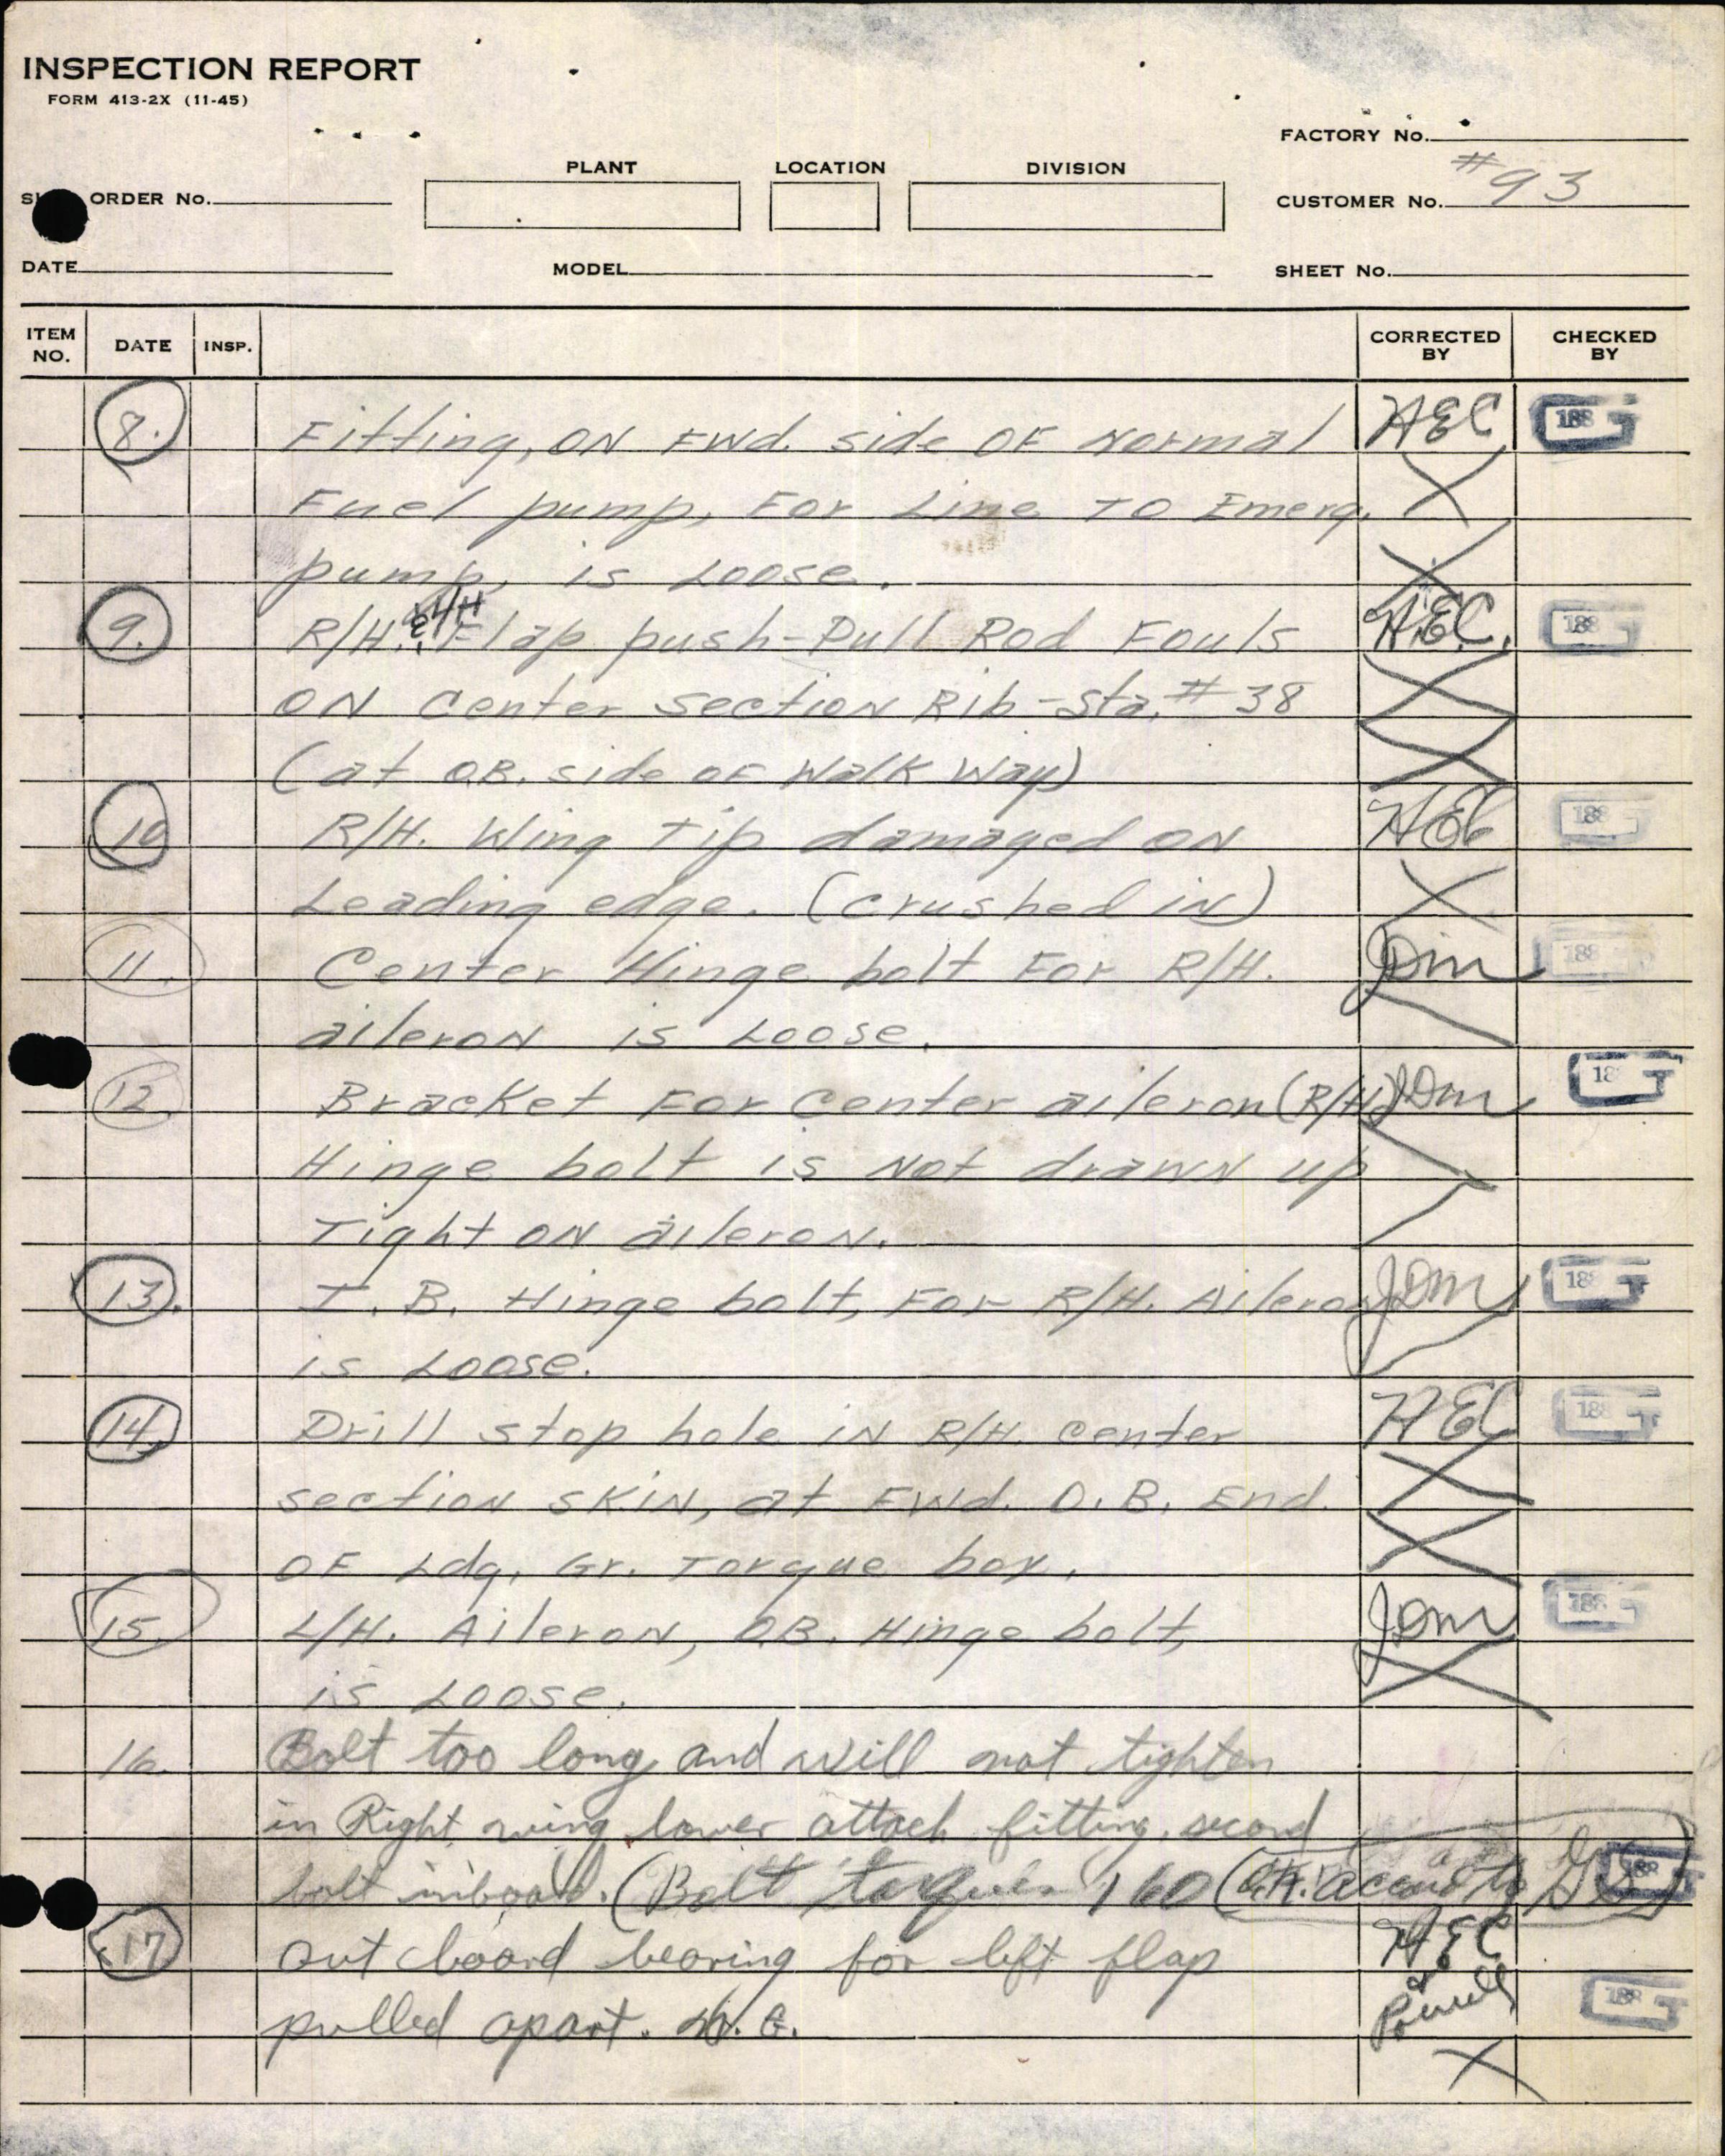 INSPECTION REPORT
FORM 413-2X (11-45)
FACTORY No.
PLANT LOCATION DIVISION
ORDER No. CUSTOMER No. #93
DATE MODEL SHEET No.
ITEM NO. DATE INSP. CORRECTED BY CHECKED BY
8. Fitting, ON FWd. side OF Normal HEC 188
Fuel pump, For Line TO Emerg. X
pump, is Loose. X
9. R/H. & L/H Flap push-Pull Rod Fouls H.E.C. 188
ON Center section Rib-Sta. #38 X
(at O.B. side OF Walk Way) X
10 R/H. Wing Tip damaged ON HEC 188
Leading edge. (crushed in) X
11. Center Hinge bolt For R/H. JDM 188
aileron is Loose.
12. Bracket For Center aileron (R/H) JDM 18
Hinge bolt is Not drawn up
Tight ON aileron.
13. I.B. Hinge bolt, For R/H. Aileron JDM 18
is Loose.
14. Drill stop hole in R/H. Center HEC 188
section skin, at FWd. O.B. End X
OF Ldg. Gr. Torque box. X
15. L/H. Aileron, O.B. Hinge bolt, JDM 188
is Loose. X
16. Bolt too long and will not tighten
in Right wing lower attach fitting, second
bolt inboard. (Bolt torques 160 188
17 out board bearing for left flap HEC
pulled apart. & Powell 188
X